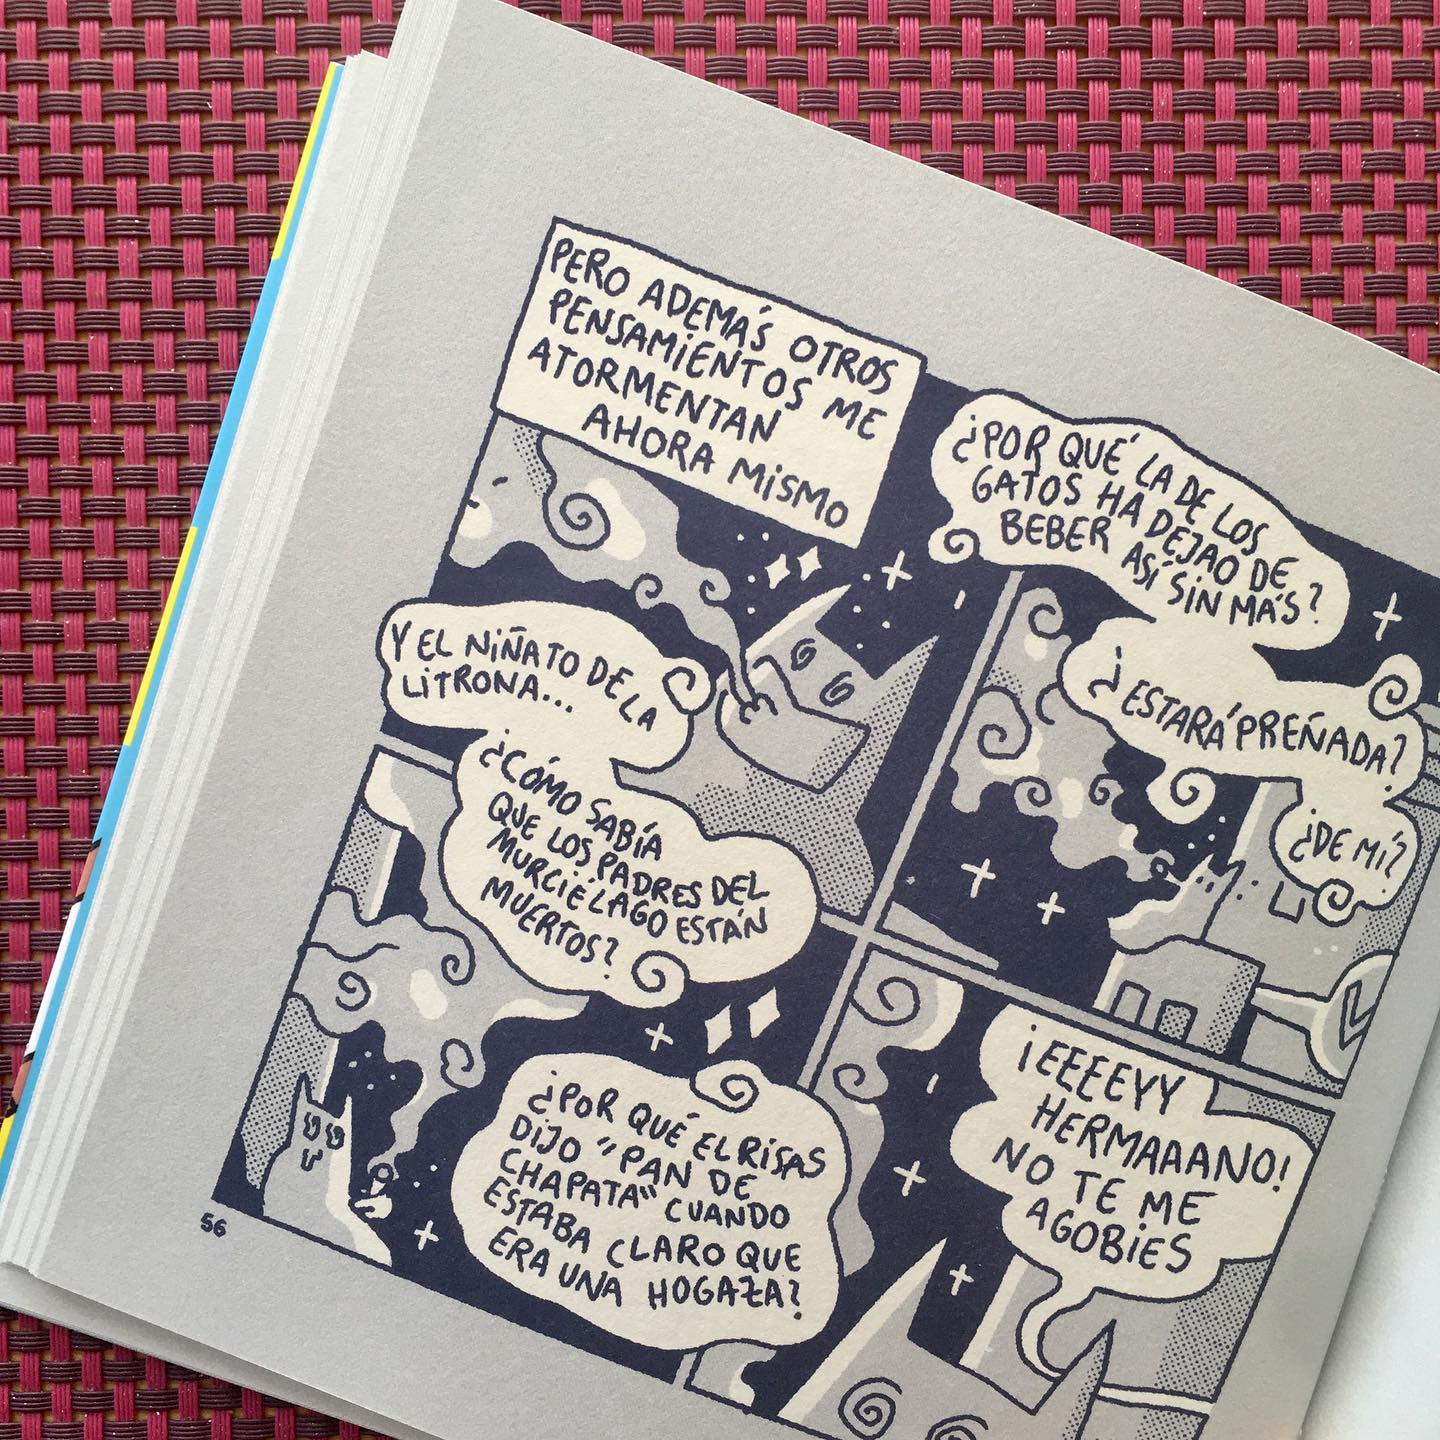 PERO ADEMÁS OTROS
PENSAMIENTOS ME
ATORMENTAN
AHORA MISMO
¿POR QUÉ LA DE LOS
GATOS HA DEJAO DE
BEBER ASÍ SIN MÁS?
¿ESTARÁ PREÑADA?
¿DE MÍ?
Y EL NIÑATO DE LA
LITRONA...
¿CÓMO SABÍA
QUE LOS PADRES DEL
MURCIÉLAGO ESTÁN
MUERTOS?
¿POR QUÉ EL RISAS
DIJO "PAN DE
CHAPATA" CUANDO
ESTABA CLARO QUE
ERA UNA HOGAZA?
¡EEEEYY
HERMAAANO!
NO TE ME
AGOBIES
56